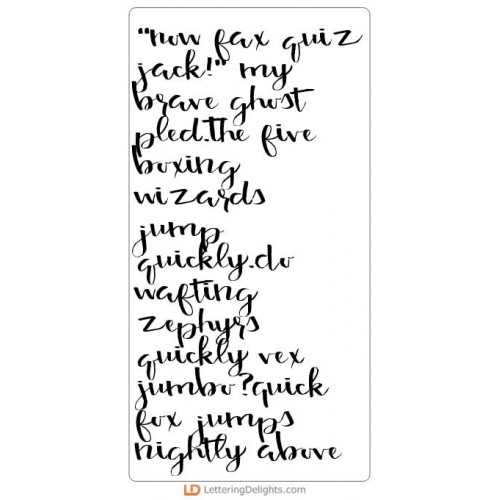 "now fax quiz
jack!" my
brave ghost
pled.the five
boxing
wizards
jump
quickly.do
wafting
zephyrs
quickly vex
jumbo?quick
fox jumps
nightly above
LD LetteringDelights.com